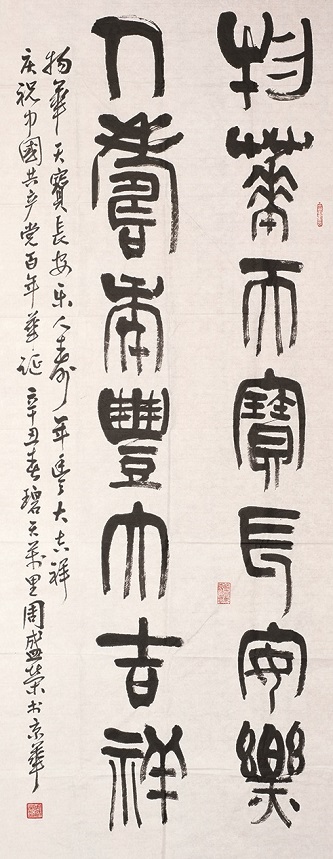 物華天寶長安樂
人壽年豐大吉祥
物華天寶長安樂人壽年豐大吉祥
庆祝中國共产党百年華诞辛丑春碧天萬里周盛榮书京華